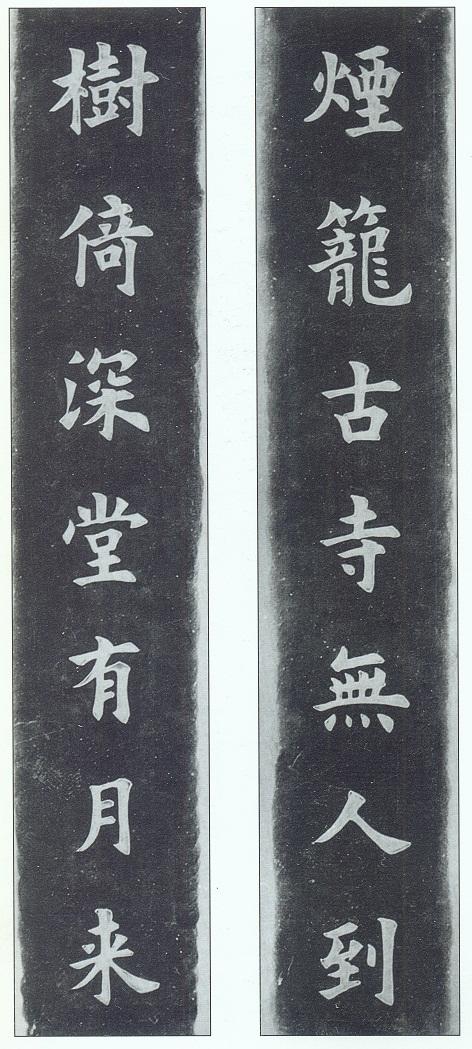 煙籠古寺無人到
樹倚深堂有月来